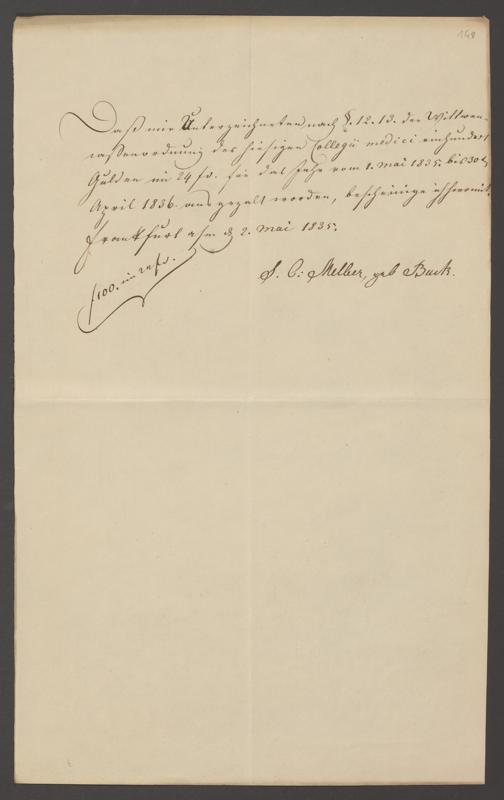 148
Daß mir Unterzeichneten nach §. 12. 13. der Wittwen-
cassenordnung des hiesigen Collegii medici einhundert
Gulden im 24 fs. für das Jahr vom 1. Mai 1835. bis 30t
April 1836. ausgezalt worden, bescheinige ich hiermit,
Frankfurt a/m d. 2. Mai 1835.
f100. im 24 fs.
S. C: Melber, geb Buck.